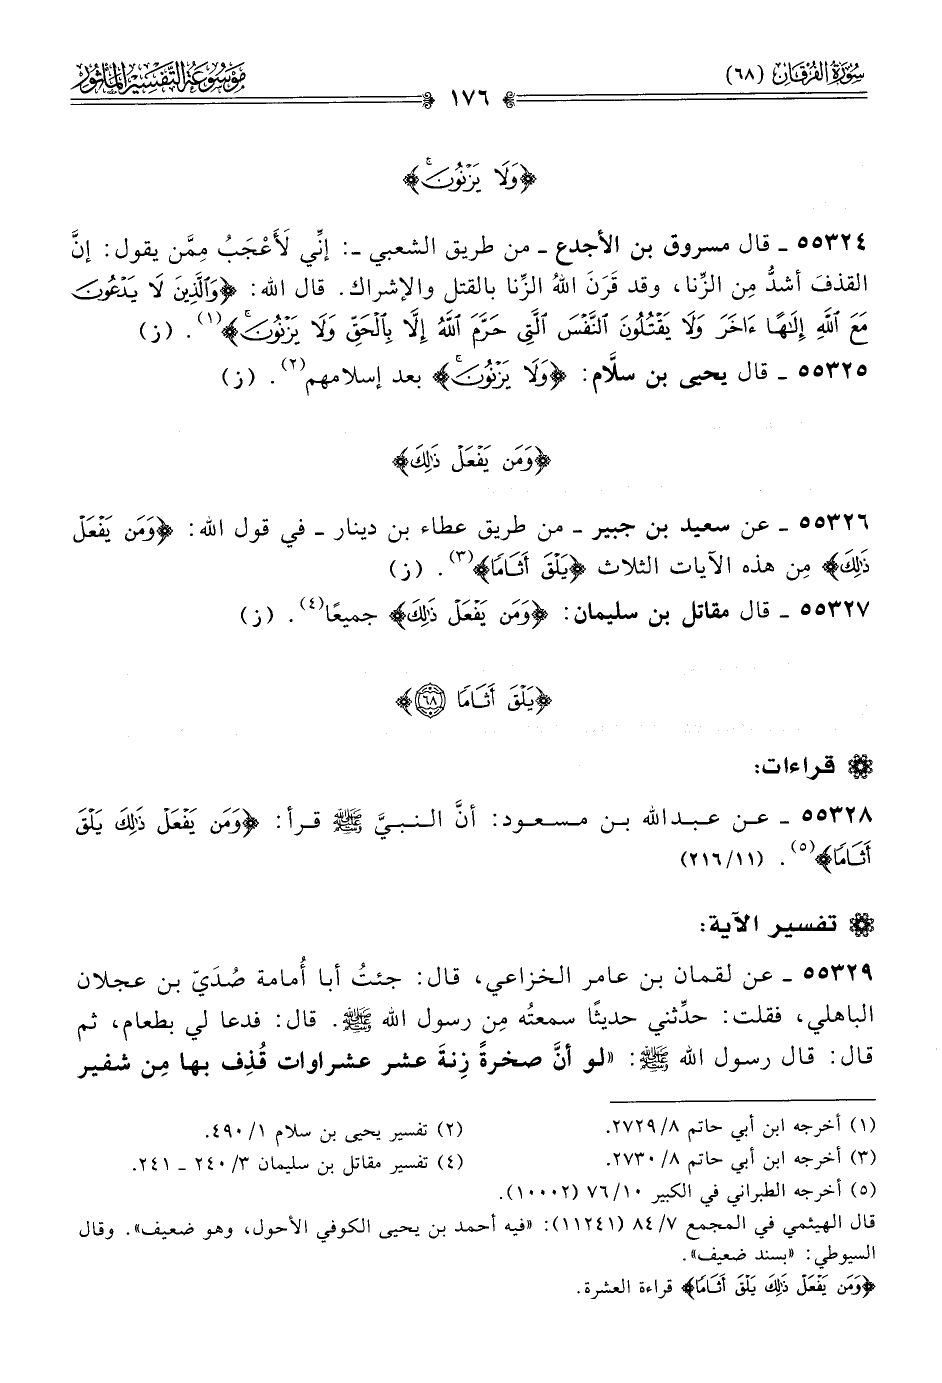 سُورَةُ الفُرْقَان (٦٨)
مَوْسُوعَةُ التَّفْسِيرِ المَأْثُور
١٧٦
﴿وَلَا يَزْنُونَۚ﴾
٥٥٣٢٤ ـ قال مسروق بن الأجدع ـ من طريق الشعبي ـ: إنِّي لَأَعْجَبُ مِمَّن يقول: إنَّ
القذف أشدُّ مِن الزِّنا، وقد قَرَنَ اللهُ الزِّنا بالقتل والإشراك. قال الله: ﴿وَٱلَّذِينَ لَا يَدْعُونَ
مَعَ ٱللَّهِ إِلَٰهًا ءَاخَرَ وَلَا يَقْتُلُونَ ٱلنَّفْسَ ٱلَّتِى حَرَّمَ ٱللَّهُ إِلَّا بِٱلْحَقِّ وَلَا يَزْنُونَۚ﴾(١). (ز)
٥٥٣٢٥ ـ قال يحيى بن سلَّام: ﴿وَلَا يَزْنُونَۚ﴾ بعد إسلامهم(٢). (ز)
﴿وَمَن يَفْعَلْ ذَٰلِكَ﴾
٥٥٣٢٦ ـ عن سعيد بن جبير ـ من طريق عطاء بن دينار ـ في قول الله: ﴿وَمَن يَفْعَلْ
ذَٰلِكَ﴾ مِن هذه الآيات الثلاث ﴿يَلْقَ أَثَامًا﴾(٣). (ز)
٥٥٣٢٧ ـ قال مقاتل بن سليمان: ﴿وَمَن يَفْعَلْ ذَٰلِكَ﴾ جميعًا(٤). (ز)
﴿يَلْقَ أَثَامًا ٦٨﴾
قراءات:
٥٥٣٢٨ ـ عن عبدالله بن مسعود: أنَّ النبيَّ ﷺ قرأ: ﴿وَمَن يَفْعَلْ ذَٰلِكَ يَلْقَ
أَثَامًا﴾(٥). (٢١٦/١١)
تفسير الآية:
٥٥٣٢٩ ـ عن لقمان بن عامر الخزاعي، قال: جئتُ أبا أُمامة صُدَيّ بن عجلان
الباهلي، فقلت: حدِّثني حديثًا سمعتَه مِن رسول الله ﷺ. قال: فدعا لي بطعام، ثم
قال: قال رسول الله ﷺ: «لو أنَّ صخرةً زِنةَ عشر عشراوات قُذِف بها مِن شفير
(١) أخرجه ابن أبي حاتم ٨/ ٢٧٢٩.
(٢) تفسير يحيى بن سلام ١/ ٤٩٠.
(٣) أخرجه ابن أبي حاتم ٨/ ٢٧٣٠.
(٤) تفسير مقاتل بن سليمان ٣/ ٢٤٠ ـ ٢٤١.
(٥) أخرجه الطبراني في الكبير ١٠/ ٧٦ (١٠٠٠٢).
قال الهيثمي في المجمع ٧/ ٨٤ (١١٢٤١): «فيه أحمد بن يحيى الكوفي الأحول، وهو ضعيف». وقال
السيوطي: «بسند ضعيف».
﴿وَمَن يَفْعَلْ ذَٰلِكَ يَلْقَ أَثَامًا﴾ قراءة العشرة.